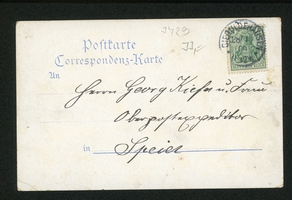 2429
Postkarte
Correspondenz-Karte
An
Herrn Georg Kiefer u. Frau
Oberpostexpeditor
in Speier